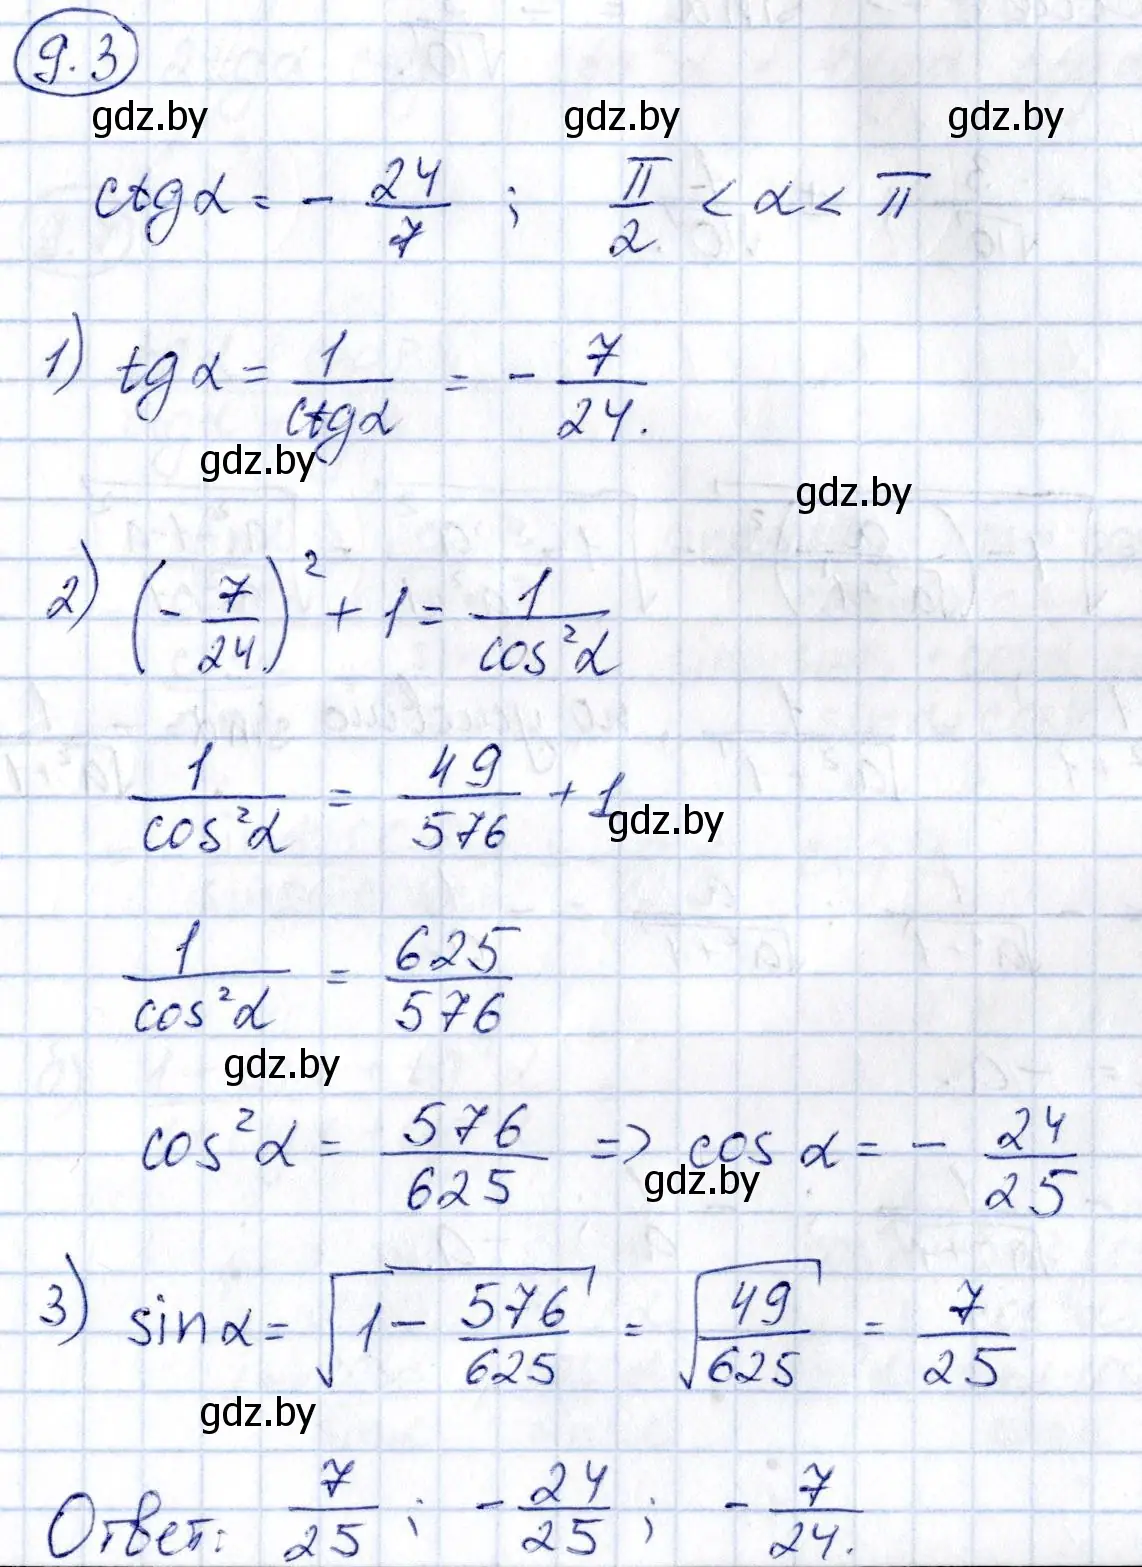 9.3
gdz.by gdz.by gdz.by
ctgα = - 24/7 ; π/2 < α < π
1) tgα = 1/ctgα = - 7/24.
gdz.by
gdz.by
2) (- 7/24)² + 1 = 1/cos²α
1/cos²α = 49/576 + 1
gdz.by
1/cos²α = 625/576
gdz.by
cos²α = 576/625 => cos α = - 24/25
gdz.by
3) sinα = √(1 - 576/625) = √(49/625) = 7/25
gdz.by
Ответ: 7/25 ; - 24/25 ; - 7/24.